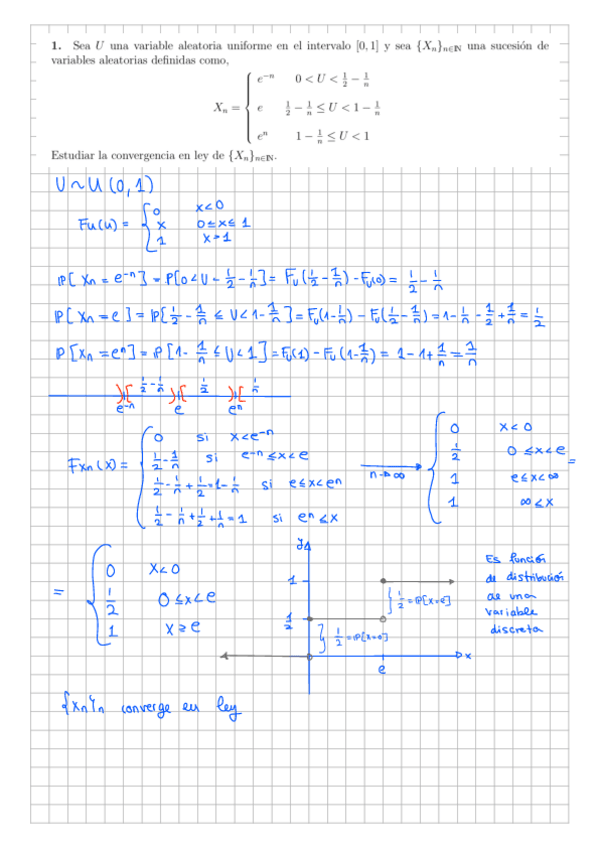 1. Sea U una variable aleatoria uniforme en el intervalo [0, 1] y sea {Xₙ}ₙ∈ℕ una sucesión de
variables aleatorias definidas como,
Xₙ = { e⁻ⁿ 0 < U < 1/2 − 1/n
e 1/2 − 1/n ≤ U < 1 − 1/n
eⁿ 1 − 1/n ≤ U < 1
Estudiar la convergencia en ley de {Xₙ}ₙ∈ℕ.
U ~ U(0,1)
F_U(u) = { 0 x<0
x 0≤x≤1
1 x>1
P[Xₙ = e⁻ⁿ] = P[0<U<1/2 − 1/n] = F_U(1/2 − 1/n) − F_U(0) = 1/2 − 1/n
P[Xₙ = e] = P[1/2 − 1/n ≤ U < 1 − 1/n] = F_U(1 − 1/n) − F_U(1/2 − 1/n) = 1 − 1/n − 1/2 + 1/n = 1/2
P[Xₙ = eⁿ] = P[1 − 1/n ≤ U < 1] = F_U(1) − F_U(1 − 1/n) = 1 − 1 + 1/n = 1/n
)[ 1/2 − 1/n )[ 1/2 )[ 1/n
e⁻ⁿ e eⁿ
F_Xₙ(x) = { 0 si x<e⁻ⁿ
1/2 − 1/n si e⁻ⁿ≤x<e
1/2 − 1/n + 1/2 = 1 − 1/n si e≤x<eⁿ
1/2 − 1/n + 1/2 + 1/n = 1 si eⁿ≤x
n→∞
{ 0 x<0
1/2 0≤x<e =
1 e≤x<∞
1 ∞≤x
= { 0 x<0
1/2 0≤x<e
1 x≥e
y
1
1/2
} 1/2 = P[X=e]
} 1/2 = P[X=0]
x
e
Es función
de distribución
de una
variable
discreta
{Xₙ}ₙ converge en ley